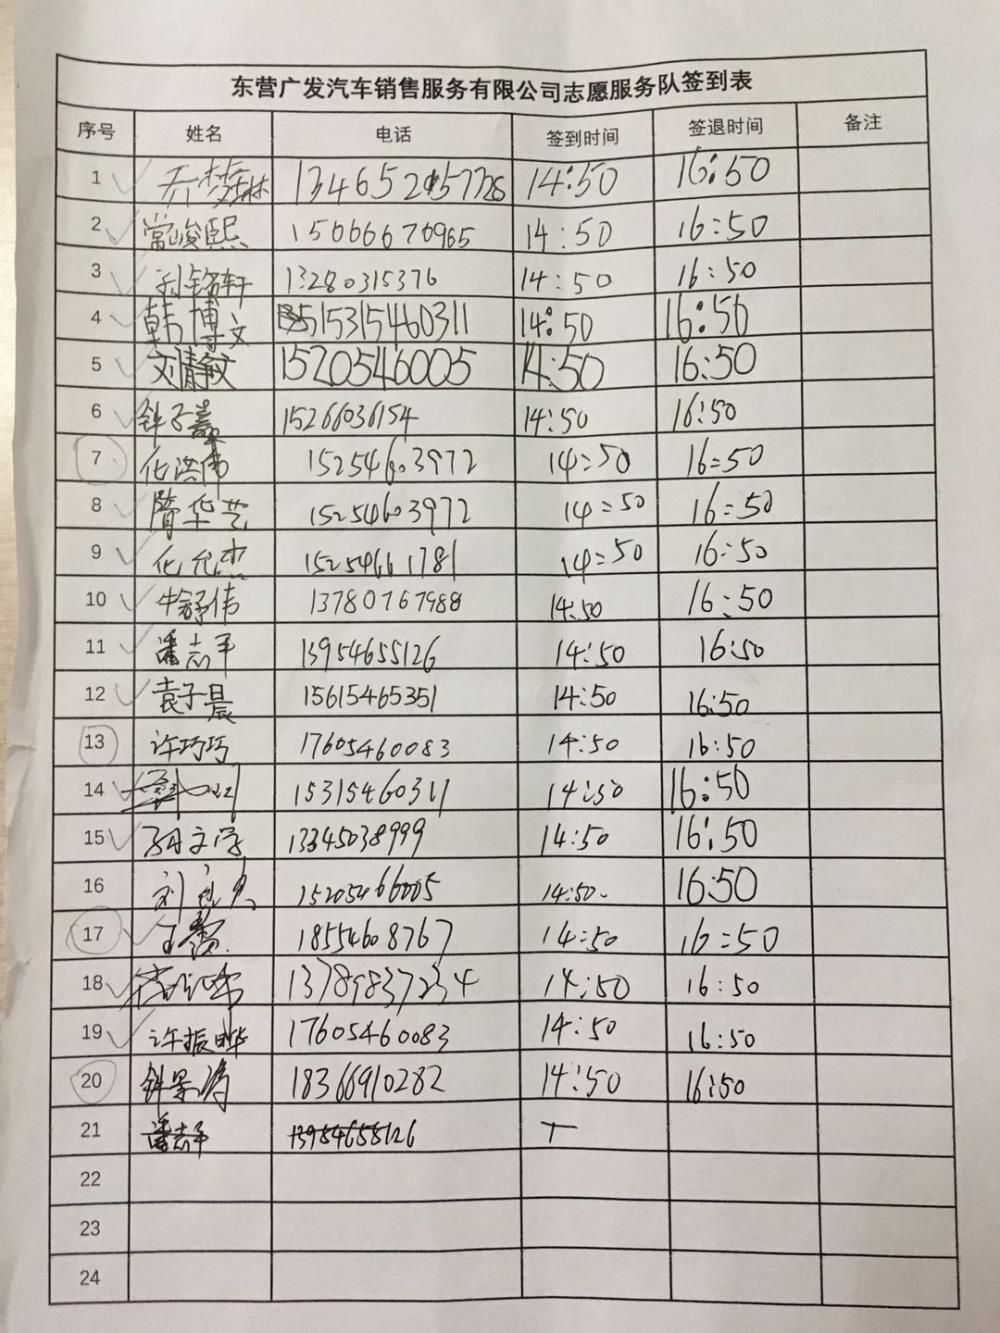 东营广发汽车销售服务有限公司志愿服务队签到表
序号 姓名 电话 签到时间 签退时间 备注
1 14:50 16:50
2 常峻熙 15666676965 14:50 16:50
3 孙铭轩 13280315376 14:50 16:50
4 韩博文 15315460311 14:50 16:50
5 刘倩敏 1520546005 14:50 16:50
6 钟子嘉 15266036154 14:50 16:50
7 化洪伟 15254603972 14:50 16:50
8 隋华艺 15254603972 14:50 16:50
9 化允杰 15254661781 14:50 16:50
10 牛舒伟 13780767988 14:50 16:50
11 潘志平 13954655126 14:50 16:50
12 袁子晨 15615465351 14:50 16:50
13 许巧巧 17605460083 14:50 16:50
14 15315460311 14:50 16:50
15 文学 13345038999 14:50 16:50
16 刘 15205466005 14:50 16:50
17 18554608767 14:50 16:50
18 13789837234 14:50 16:50
19 许振晔 17605460083 14:50 16:50
20 钟景涛 18366910282 14:50 16:50
21 潘志平 13954655126
22
23
24